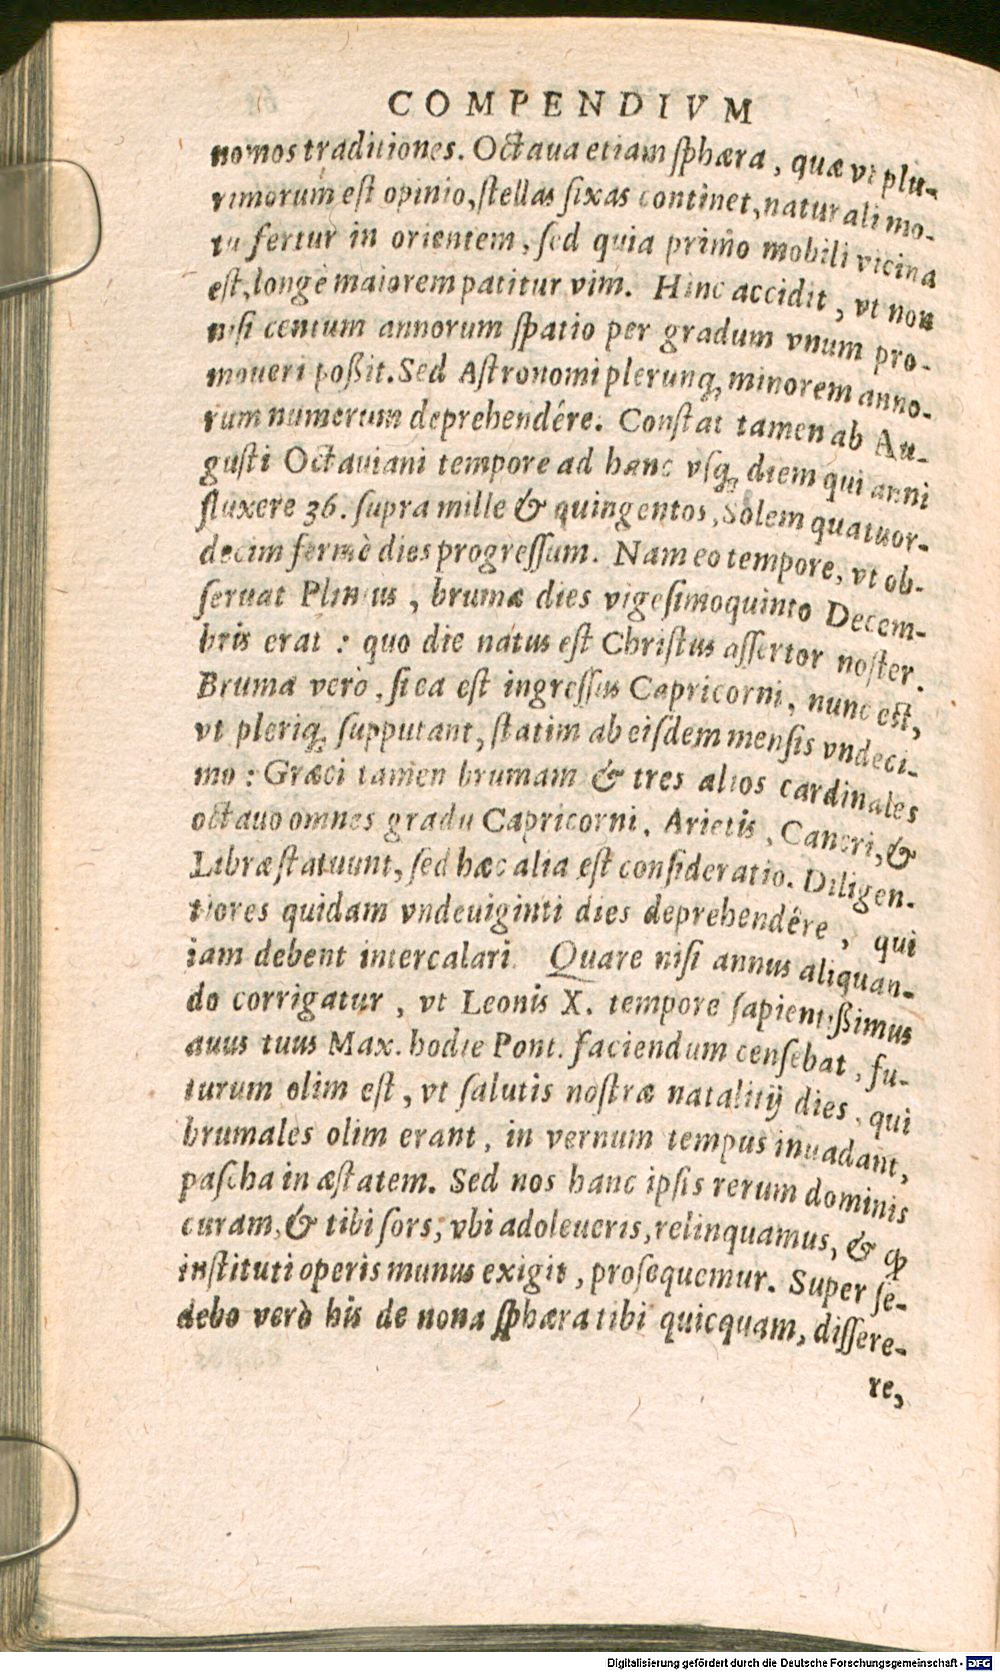 COMPENDIVM
nomos traditiones. Octaua etiam sphæra, quæ vt plu-
rimorum est opinio, stellas fixas continet, naturali mo-
tu fertur in orientem, sed quia primo mobili vicina
est, longè maiorem patitur vim. Hinc accidit, vt non
nisi centum annorum spatio per gradum vnum pro-
moueri poßit. Sed Astronomi plerunq; minorem anno-
rum numerum deprehendére. Constat tamen ab Au-
gusti Octauiani tempore ad hanc vsq; diem qui anni
fluxere 36. supra mille & quingentos, Solem quatuor-
decim fermè dies progressum. Nam eo tempore, vt ob-
seruat Plinius, brumæ dies vigesimoquinto Decem-
bris erat: quo die natus est Christus assertor noster.
Bruma verò, si ea est ingressus Capricorni, nunc est,
vt pleriq; supputant, statim ab eisdem mensis vndeci-
mo: Græci tamen brumam & tres alios cardinales
octauo omnes gradu Capricorni, Arietis, Cancri, &
Libræ statuunt, sed hæc alia est consideratio. Diligen-
tiores quidam vndeuiginti dies deprehendêre, qui
iam debent intercalari. Quare nisi annus aliquan-
do corrigatur, vt Leonis X. tempore sapientißimus
auus tuus Max. hodie Pont. faciendum censebat, fu-
turum olim est, vt salutis nostræ natalitij dies, qui
brumales olim erant, in vernum tempus inuadant,
pascha in æstatem. Sed nos hanc ipsis rerum dominis
curam, & tibi fors, vbi adoleueris, relinquamus, & ꝙ
instituti operis munus exigit, prosequemur. Super se-
debo verò his de nona sphæra tibi quicquam, dissere-
re,
Digitalisierung gefördert durch die Deutsche Forschungsgemeinschaft - DFG